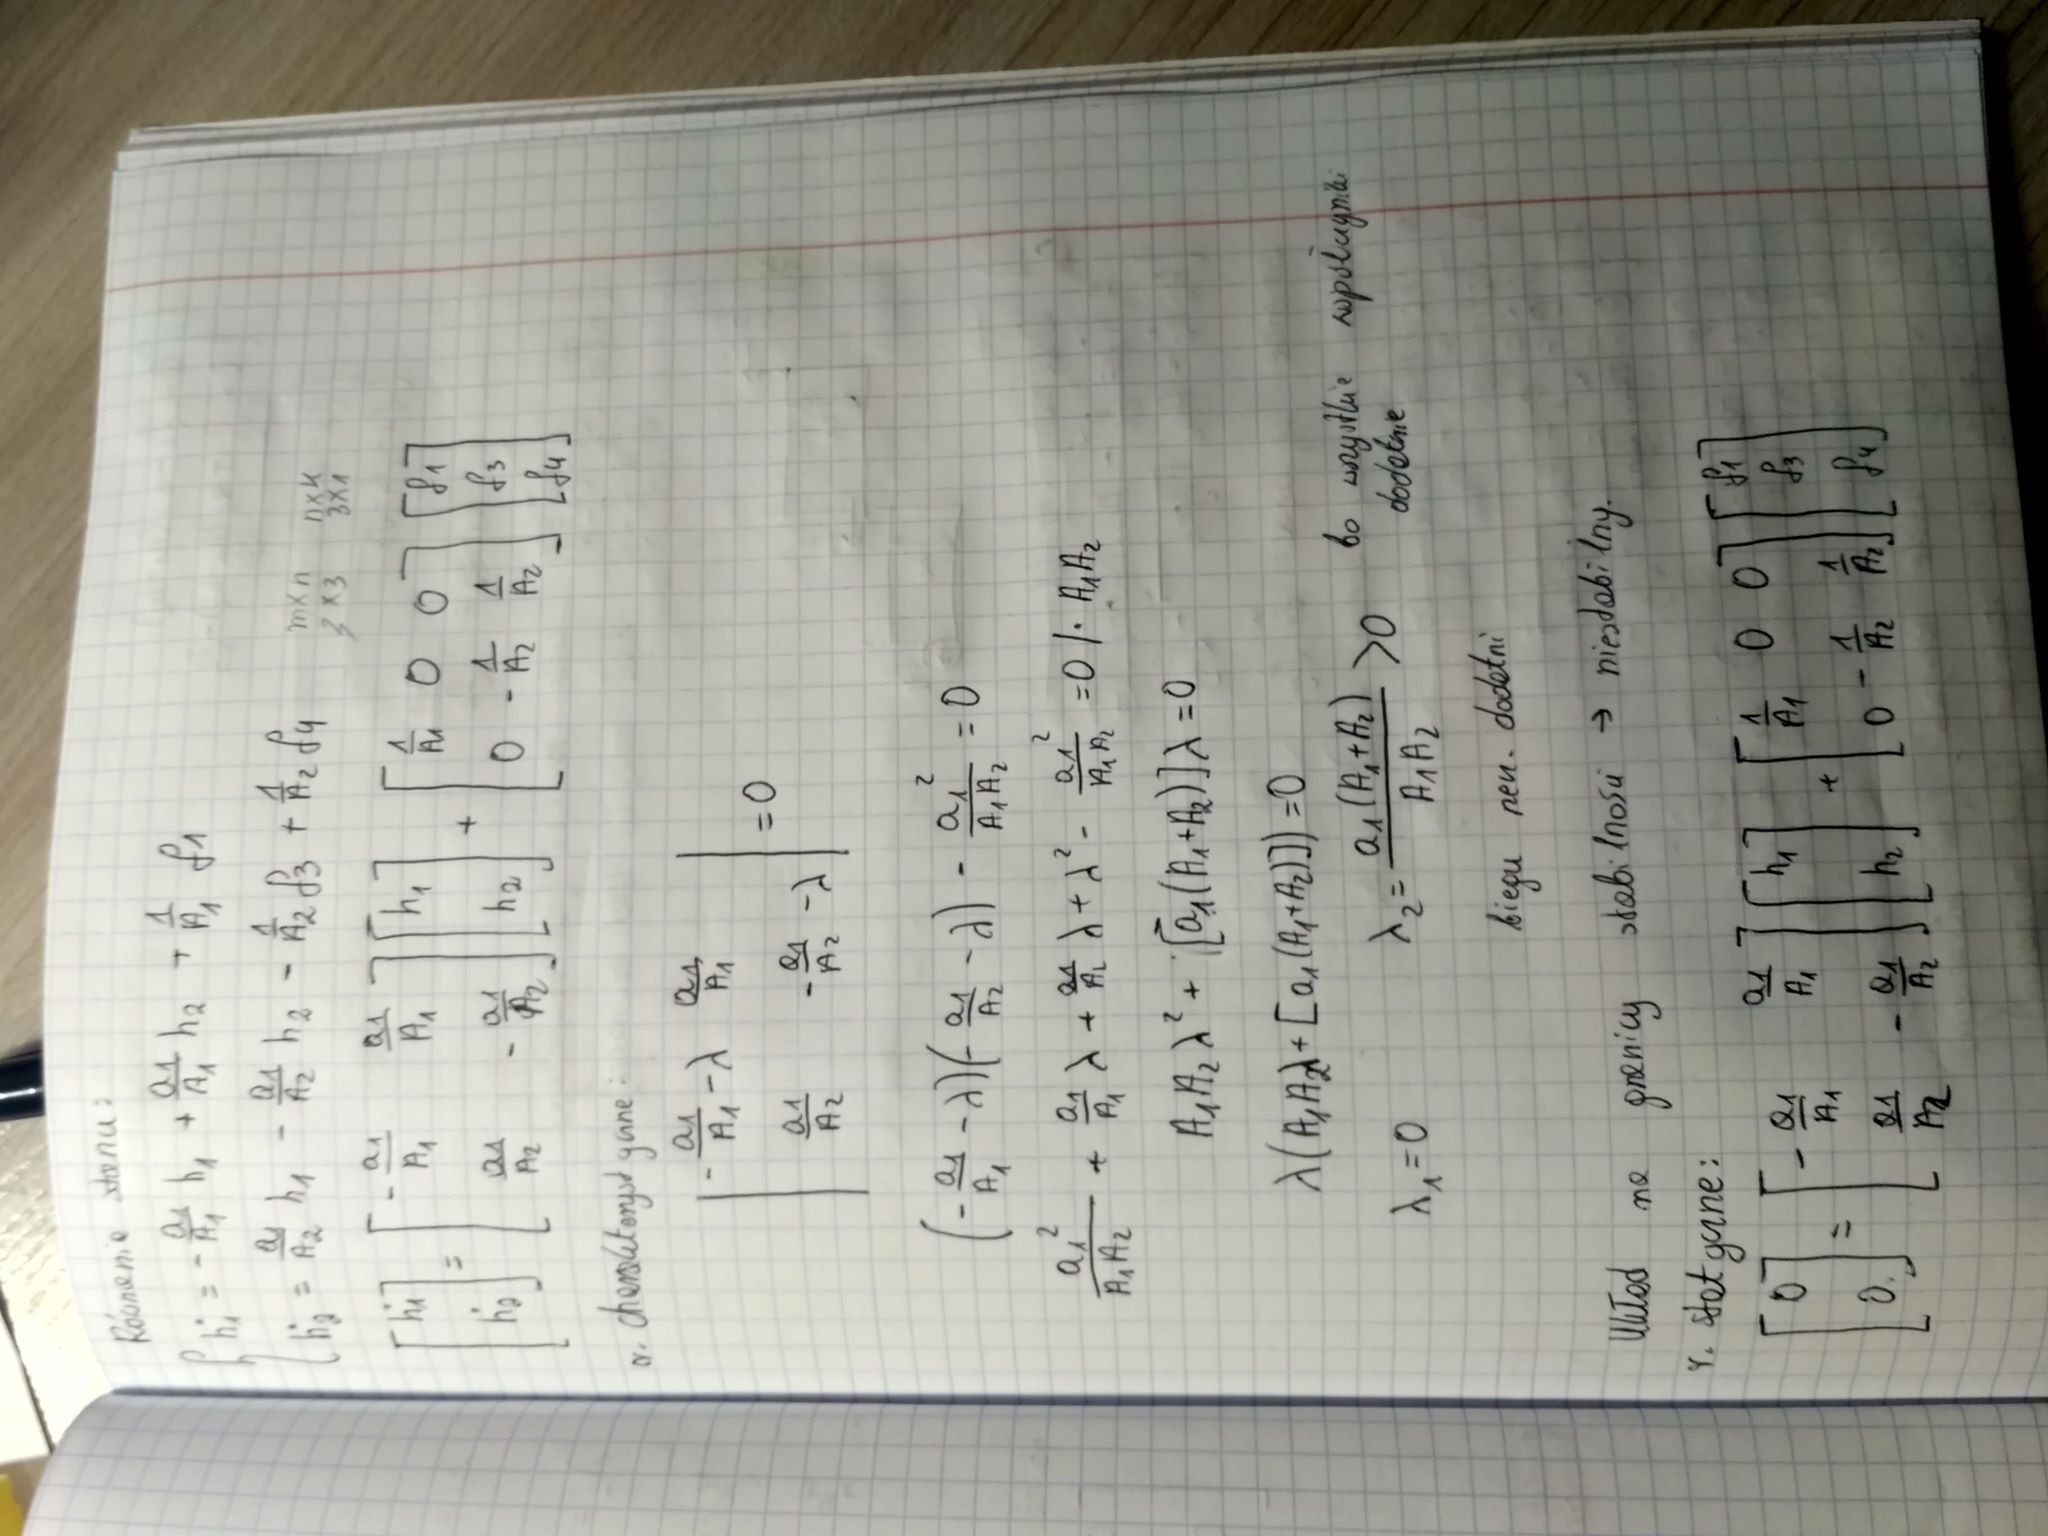 Równanie stanu:
ḣ1 = - a1/A1 h1 + a1/A1 h2 + 1/A1 f1
ḣ2 = a1/A2 h1 - a1/A2 h2 - 1/A2 f3 + 1/A2 f4
m×n n×k
3×3 3×1
[ḣ1] = [-a1/A1 a1/A1] [h1] + [1/A1 0 0] [f1]
[ḣ2] [a1/A2 -a1/A2] [h2] [0 -1/A2 1/A2] [f3]
[f4]
r. charakterystyczne:
| -a1/A1 - λ a1/A1 |
| a1/A2 -a1/A2 - λ | = 0
(-a1/A1 - λ)(-a1/A2 - λ) - a1²/A1A2 = 0
a1²/A1A2 + a1/A1 λ + a1/A2 λ + λ² - a1²/A1A2 = 0 /· A1A2
A1A2λ² + [a1(A1+A2)]λ = 0
λ(A1A2λ + [a1(A1+A2)]) = 0
λ1 = 0 λ2 = a1(A1+A2)/A1A2 > 0 bo wszystkie współczynniki
dodatnie
biegun dodatni
Układ na granicy stabilności → niestabilny.
r. statyczne:
[0] = [-a1/A1 a1/A1] [h1] + [1/A1 0 0] [f1]
[0] [a1/A2 -a1/A2] [h2] [0 -1/A2 1/A2] [f3]
[f4]